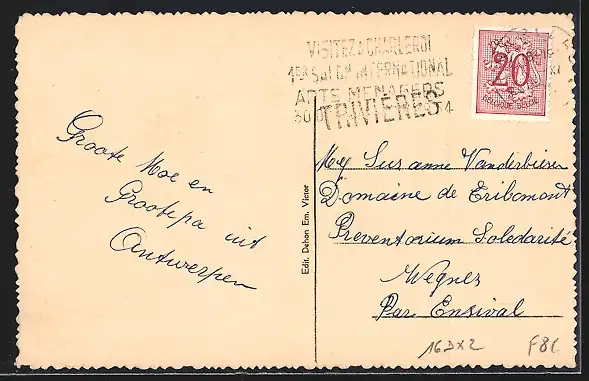 VISITEZ A CHARLEROI
1ER SALON INTERNATIONAL
ARTS MENAGERS
TRIVIÈRES
20
BELGIQUE-BELGIE
Groote Moe en
Grootepa uit
Antwerpen
Edit. Dehon Em. Victor
Mej Susanne Vanderbieren
Domaine de Tribomont
Preventorium Soledarité
Wegnes
Par Ensival
16DX2
F81